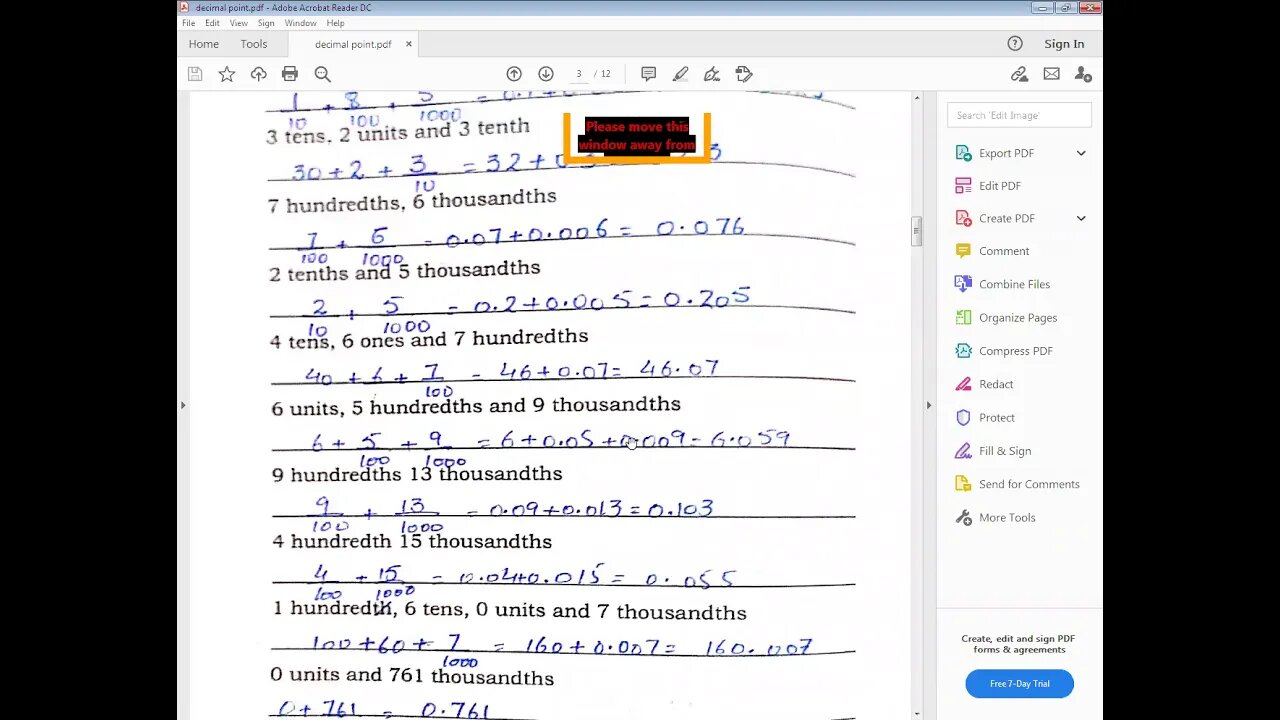 decimal point.pdf - Adobe Acrobat Reader DC
File Edit View Sign Window Help
Home Tools decimal point.pdf × ? Sign In
3 / 12
1/10 + 8/100 + 5/1000 =
3 tens, 2 units and 3 tenth
Please move this
window away from
30+2 + 3/10 = 32+
7 hundredths, 6 thousandths
7/100 + 6/1000 = 0.07+0.006 = 0.076
2 tenths and 5 thousandths
2/10 + 5/1000 = 0.2+0.005 = 0.205
4 tens, 6 ones and 7 hundredths
40 + 6 + 7/100 = 46+0.07= 46.07
6 units, 5 hundredths and 9 thousandths
6 + 5/100 + 9/1000 = 6+0.05+0.009= 6.059
9 hundredths 13 thousandths
9/100 + 13/1000 = 0.09+0.013 = 0.103
4 hundredth 15 thousandths
4/100 + 15/1000 = 0.04+0.015 = 0.055
1 hundredth, 6 tens, 0 units and 7 thousandths
100+60+ 7/1000 = 160+0.007= 160.007
0 units and 761 thousandths
0+761 = 0.761
Search 'Edit Image'
Export PDF
Edit PDF
Create PDF
Comment
Combine Files
Organize Pages
Compress PDF
Redact
Protect
Fill & Sign
Send for Comments
More Tools
Create, edit and sign PDF
forms & agreements
Free 7-Day Trial